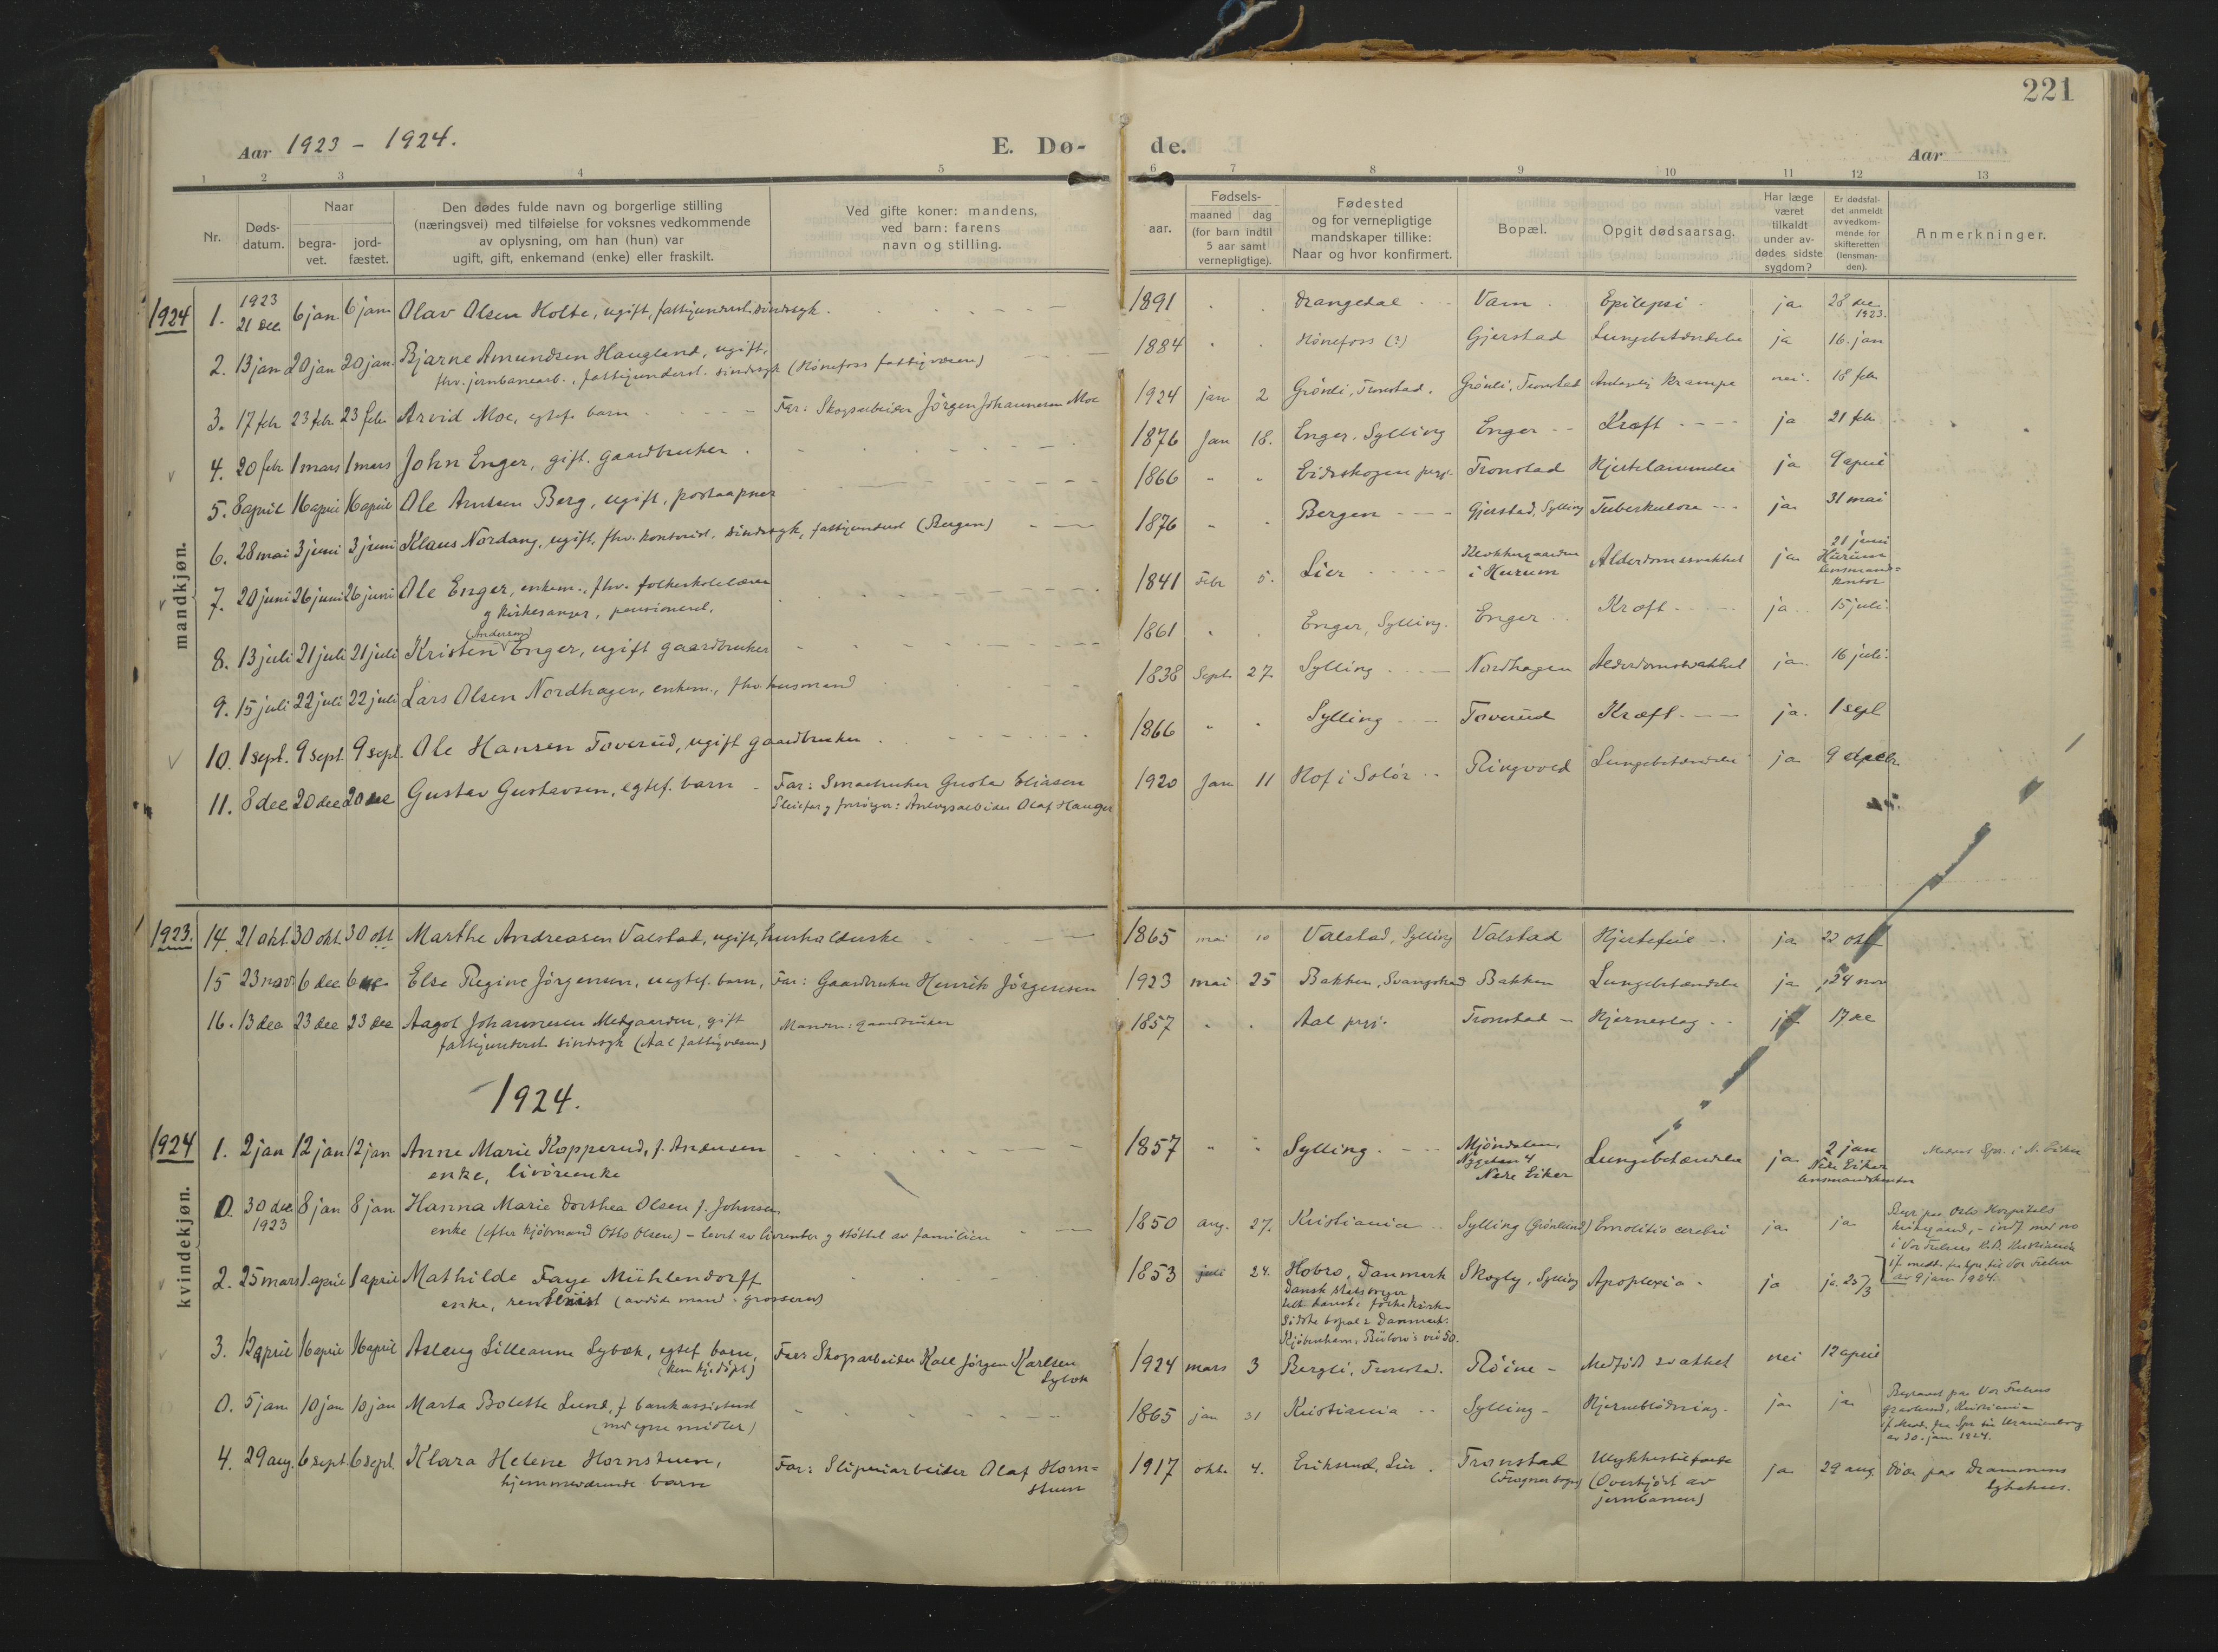 221
Aar 1923 - 1924.
E. Dø- de.
Aar
1 2 3 4 5 6 7 8 9 10 11 12 13
Nr.
Døds-
datum.
Naar
begra-
vet.
jord-
fæstet.
Den dødes fulde navn og borgerlige stilling
(næringsvei) med tilføielse for voksnes vedkommende
av oplysning, om han (hun) var
ugift, gift, enkemand (enke) eller fraskilt.
Ved gifte koner: mandens,
ved barn: farens
navn og stilling.
aar.
Fødsels-
maaned dag
(for barn indtil
5 aar samt
vernepligtige).
Fødested
og for vernepligtige
mandskaper tillike:
Naar og hvor konfirmert.
Bopæl.
Opgit dødsaarsag.
Har læge
været
tilkaldt
under av-
dødes sidste
sygdom?
Er dødsfal-
det anmeldt
av vedkom-
mende for
skifteretten
(lensman-
den).
Anmerkninger.
mandkjøn.
1924 1. 1923 21 dec 6 jan 6 jan Olav Olsen Holte, ugift, fattigunderst. sindssyk. 1891 Drangedal Vam Epilepsi ja 28 dec 1923.
2. 13 jan 20 jan 20 jan. Bjarne Amundsen Haugland, ugift, 1884 Hønefoss (?) Gjerstad Lungebetændelse ja 16. jan
fhv. jernbanearb., fattigunderst. sindssyk (Hønefoss fattigvæsen)
3. 17 febr 23 febr. 23 febr Arvid Moe, egtef. barn Far: Skogsarbeider Jörgen Johannesen Moe 1924 jan 2 Grönli, Tronstad. Grönli, Tronstad Antagelig krampe nei. 18 febr
4. 20 febr 1 mars 1 mars John Enger, gift. gaardbruker. 1876 Jan 18. Enger, Sylling Enger Kræft ja 21 febr
5. 8 april 16 april 16 april Ole Arntsen Berg, ugift, postaapner 1866 Eidskogen prgj. Tronstad Hjertelammelse ja 9 april
6. 28 mai 3 juni 3 juni Klaus Nordang, ugift, fhv. kontorist, sindssyk, fattigunderst (Bergen) 1876 Bergen Gjerstad, Sylling Tuberkulose ja 31 mai
7. 20 juni 26 juni 26 juni Ole Enger, enkem., fhv. folkeskolelærer 1841 Febr 5. Lier Klokkergaarden i Hurum Alderdomssvakhet ja 21 juni Hurum lensmands=kontor
og kirkesanger, pensionert.
8. 13 juli 21 juli 21 juli Kristen (Andersen) Enger, ugift gaardbruker 1861 Enger, Sylling. Enger Kræft ja 15 juli.
9. 15 juli 22 juli 22 juli Lars Olsen Nordhagen, enkem., fhv. husmand 1838 Sept. 27. Sylling Nordhagen Alderdomsvakhet ja. 16 juli.
10. 1 sept. 9 sept. 9 sept. Ole Hansen Toverud, ugift gaardbruker 1866 Sylling Toverud Kræft. ja. 1 sept
11. 8 dec 20 dec 20 dec Gustav Gustavsen, egtef. barn Far: Smaabruker Gustav Eliasen 1920 Jan 11 Hof i Solör Ringvold Lungebetændelse ja 9
Stiefar og forsörger: Anlegsarbeider Olaf Hauger
kvindekjøn.
1923. 14. 21 okt 30 okt. 30 okt Marthe Andreasen Valstad, ugift, husholderske 1865 mai 10 Valstad, Sylling Valstad Hjertefeil ja 22 okt
15 23 nov. 6 dec 6 dec Else Regine Jörgensen, uegtef. barn, Far: Gaardbruker Henrik Jörgensen 1923 mai 25 Bakken, Svangstrad Bakken Lungebetændelse ja 24 nov
16. 13 dec 23 dec 23 dec Aagot Johannesen Medgaarden, gift Manden: gaardbruker 1857 Aal prgj. Tronstad Hjerneslag ja 17 dec
fattigunderst. sindssyk (Aal fattigvæsen)
1924.
1924 1. 2 jan 12 jan 12 jan Anne Marie Kopperud, f. Anensen 1857 Sylling. Mjöndalen, Nygaten 4 Nedre Eiker Lungebetændelse ja 2 jan Nedre Eiker lensmandskontor
enke, livöreenke
0. 30 dec 1923 8 jan 8 jan Hanna Marie Dorthea Olsen f. Johnsen 1850 aug. 27. Kristiania Sylling (Grönlund) Emolitio cerebri ja ja Begr. paa Oslo Hospitals kirkegaard,
enke (efter kjöbmand Otto Olsen) - levet av livrenter og stöttet av familien
i Vor Frelsers Kristiania
2. 25 mars 1 april 1 april Mathilde Faye Mühlendorff 1853 juli 24. Hobro, Danmark Skogly, Sylling Apoplexia ja ja. 25/3 9 jan 1924.
enke, rentenist (avdöde mand: grosserer)
Dansk statsborger
Sidste bopæl i Danmark:
Kjöbenhavn, Bülows vei 50.
3. 12 april 16 april 16 april Aslaug Lilleanne Sybæk, egtef barn, Far: Skogsarbeider Karl Jörgen Karlsen Sybæk 1924 mars 3 Bergli, Tronstad. Röine Medfödt svakhet nei 12 april
(hjemdöpt)
0. 5 jan 10 jan 10 jan Marta Bolette Lund, f. bankassistent 1865 jan 31 Kristiania Sylling Hjerneblödning. ja ja Begravet paa Vor Frelsers gravlund, Kristiania
(med egne midler)
av 30. jan 1924.
4. 29 aug. 6 sept. 6 sept. Klara Helene Hornstuen, Far: Sliperiarbeider Olaf Horn=stuen 1917 okt. 4. Eriksrud, Lier. Tronstad (Frogner sogn) Ulykkestilfælde (Overkjört av jernbanen) ja 29 aug. Död paa Drammens sykehus.
hjemmeværende barn